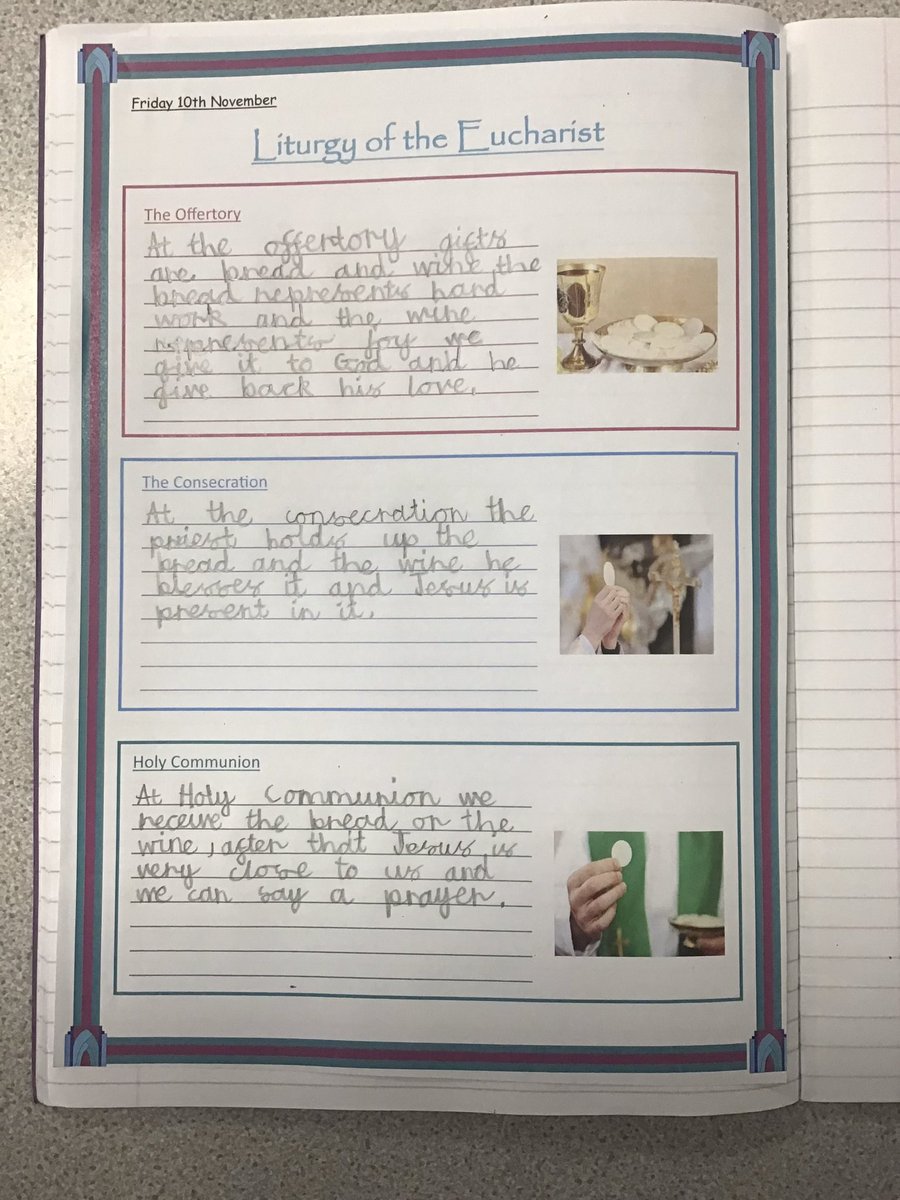 Friday 10th November
Liturgy of the Eucharist
The Offertory
At the offertory gifts
are bread and wine, the
bread represents hard
work and the wine
represents joy we
give it to God and he
give back his love.
The Consecration
At the consecration the
priest holds up the
bread and the wine he
blesses it and Jesus is
present in it.
Holy Communion
At Holy Communion we
receive the bread or the
wine, after that Jesus is
very close to us and
we can say a prayer.